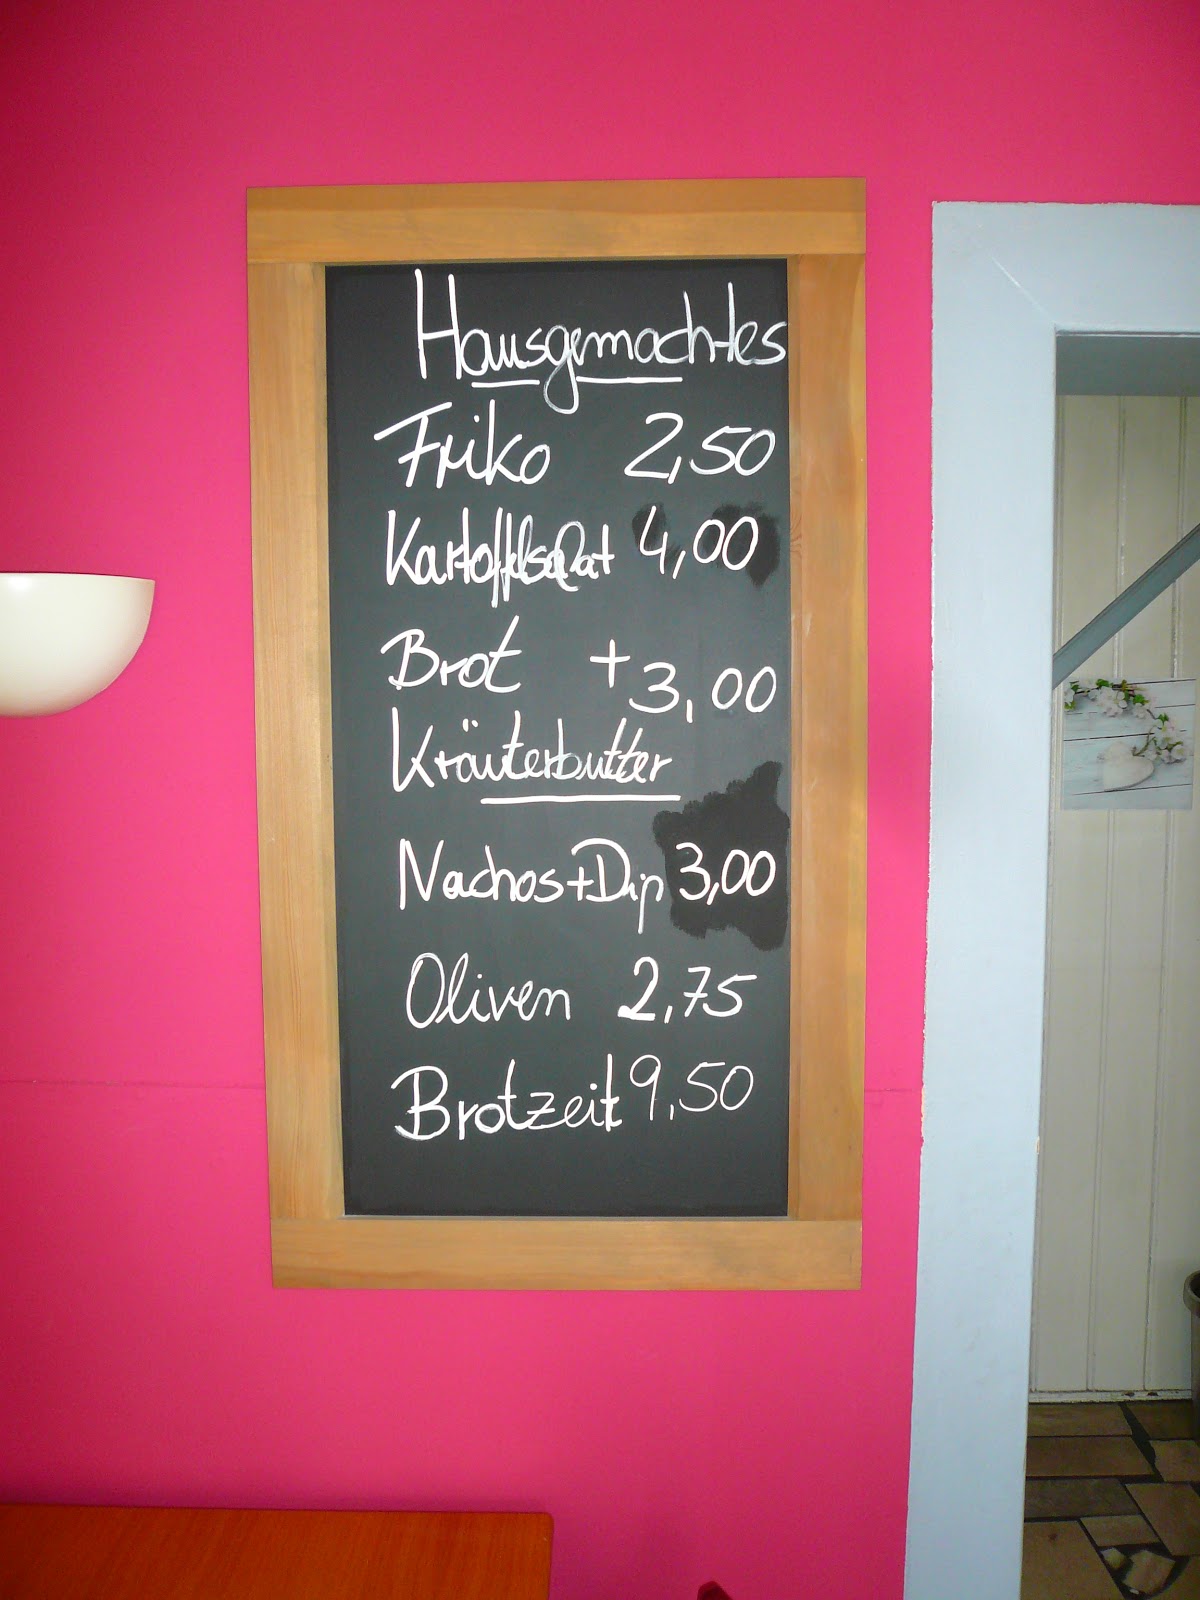 Hausgemachtes
Friko 2,50
Kartoffelsalat 4,00
Brot + 3,00
Kräuterbutter
Nachos+Dip 3,00
Oliven 2,75
Brotzeit 9,50